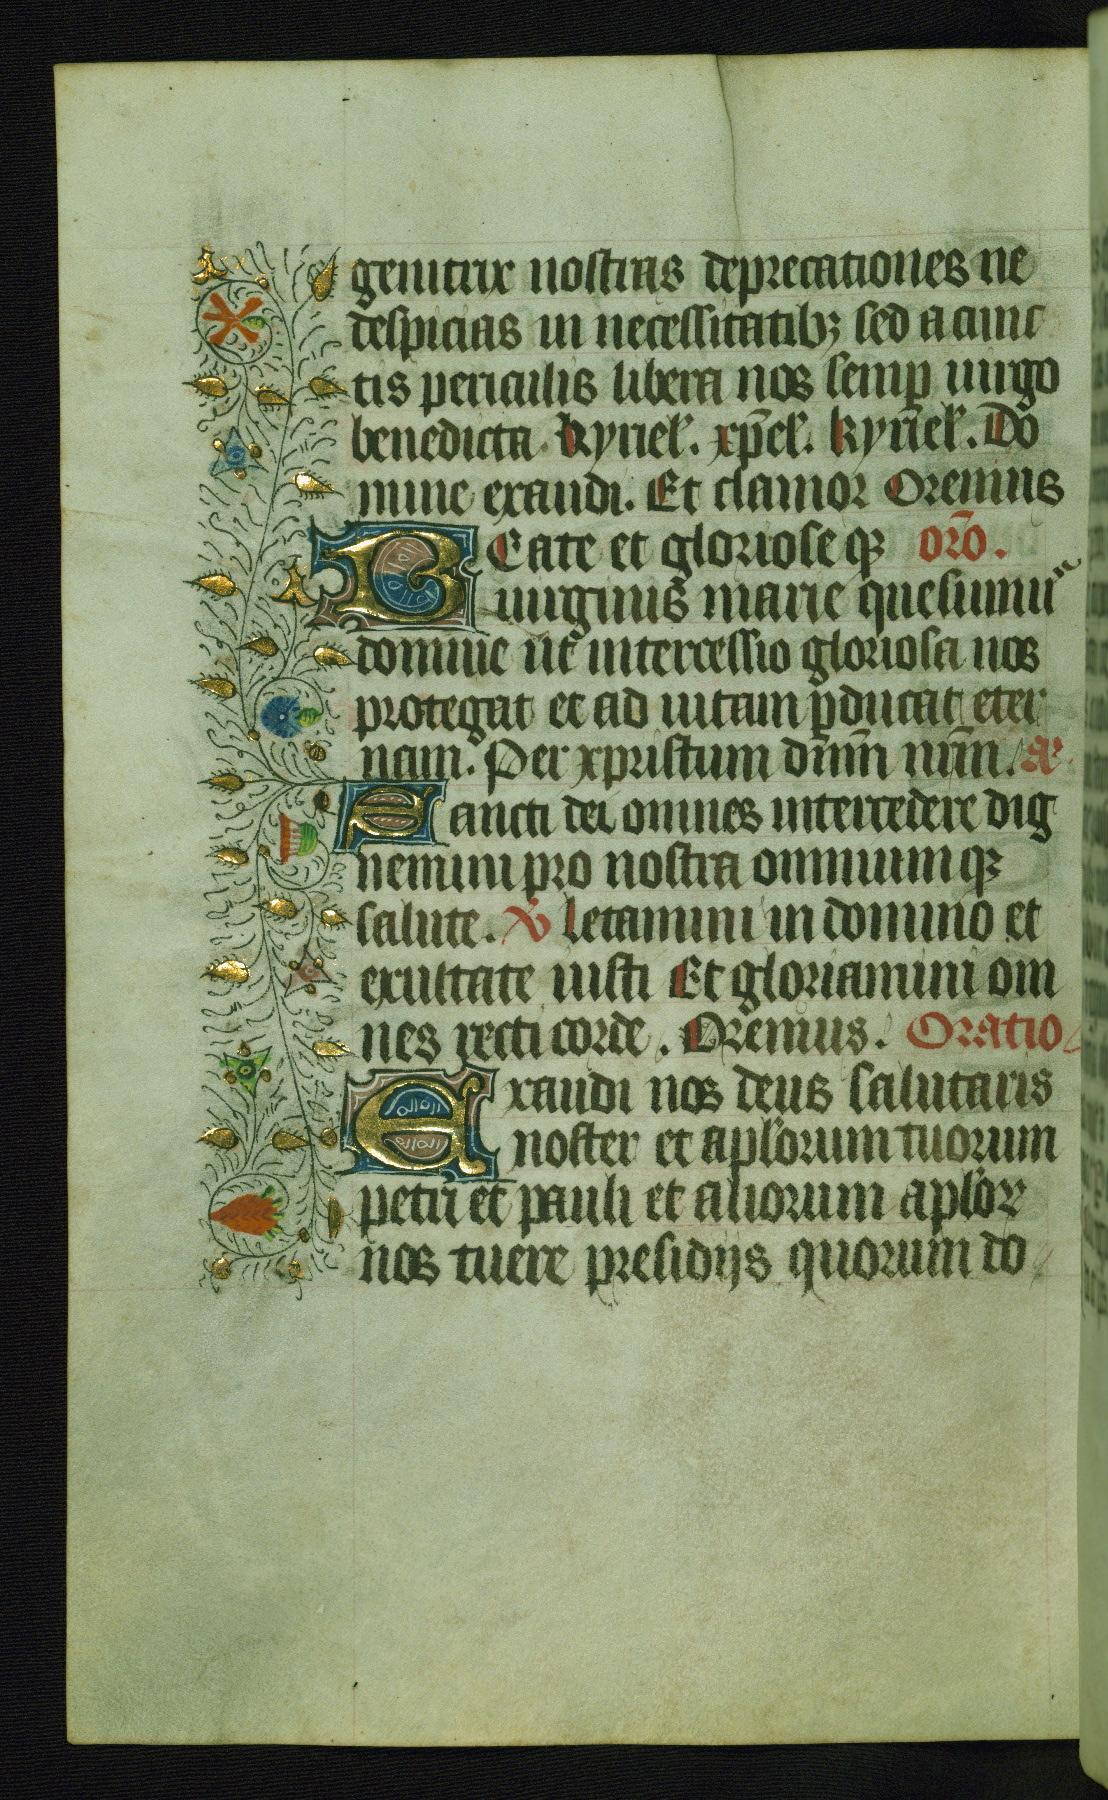 genitrix nostras deprecationes ne
despicias in necessitatibꝫ sed a cunc
tis periculis libera nos semꝑ uirgo
benedicta. Kyriel. xp̄el. kyriel. Dō
mine exaudi. Et clamor Oremus
BEate et gloriose qꝫ orō.
uirginis marie quesumus
domine ut intercessio gloriosa nos
protegat et ad uitam ꝑducat eter
nam. Per xpristum dn̄m nr̄m. a͞n
Sancti dei omnes intercedere dig
nemini pro nostra omnium qꝫ
salute. ℣ letamini in domino et
exultate iusti Et gloriamini om
nes recti corde. Oremus. Oratio
Exaudi nos deus salutaris
noster et apl'orum tuorum
petri et pauli et aliorum apl'oꝝ
nos tuere presidijs quorum do